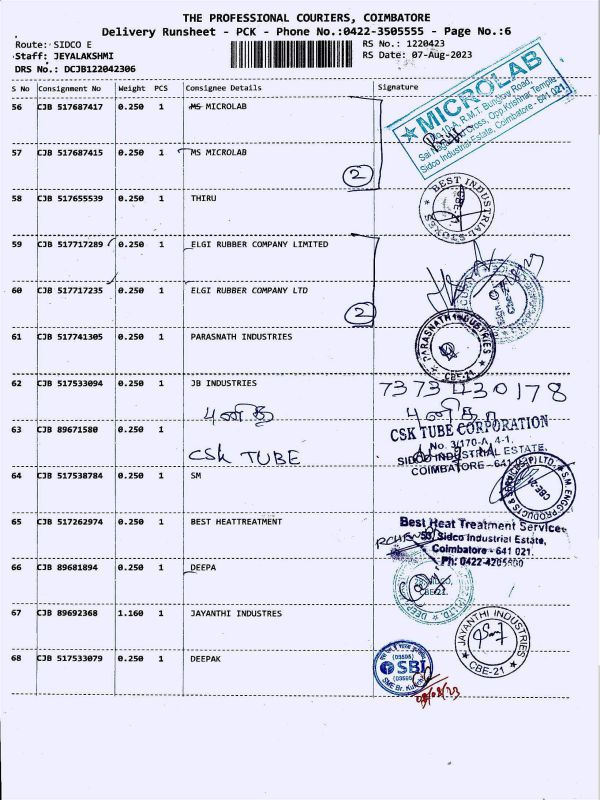 THE PROFESSIONAL COURIERS, COIMBATORE
Delivery Runsheet - PCK - Phone No.:0422-3505555 - Page No.:6
Route: SIDCO E
RS No.: 1220423
Staff: JEYALAKSHMI
RS Date: 07-Aug-2023
DRS No.: DCJB122042306
S No Consignment No Weight PCS Consignee Details Signature
56 CJB 517687417 0.250 1 MS MICROLAB
MICROLAB
Sidco Industrial Estate, Coimbatore - 641 021
57 CJB 517687415 0.250 1 MS MICROLAB
2
58 CJB 517655539 0.250 1 THIRU
BEST INDUSTRIAL
59 CJB 517717289 0.250 1 ELGI RUBBER COMPANY LIMITED
60 CJB 517717235 0.250 1 ELGI RUBBER COMPANY LTD
2
61 CJB 517741305 0.250 1 PARASNATH INDUSTRIES
PARASNATH INDUSTRIES
CBE-21
62 CJB 517533094 0.250 1 JB INDUSTRIES
7373430178
63 CJB 89671580 0.250 1
CSK TUBE
CSK TUBE CORPORATION
No. 3/170-A, 4-1,
SIDCO INDUSTRIAL ESTATE,
COIMBATORE - 641
64 CJB 517538784 0.250 1 SM
S.M. ENGG PRODUCTS & SERVICES (P) LTD.
CBE-21
65 CJB 517262974 0.250 1 BEST HEATTREATMENT
Best Heat Treatment Services
53, Sidco Industrial Estate,
Coimbatore - 641 021.
Ph: 0422-4205800
66 CJB 89681894 0.250 1 DEEPA
67 CJB 89692368 1.160 1 JAYANTHI INDUSTRES
JAYANTHI INDUSTRIES
CBE-21
68 CJB 517533079 0.250 1 DEEPAK
SBI
(03595)
08/08/23